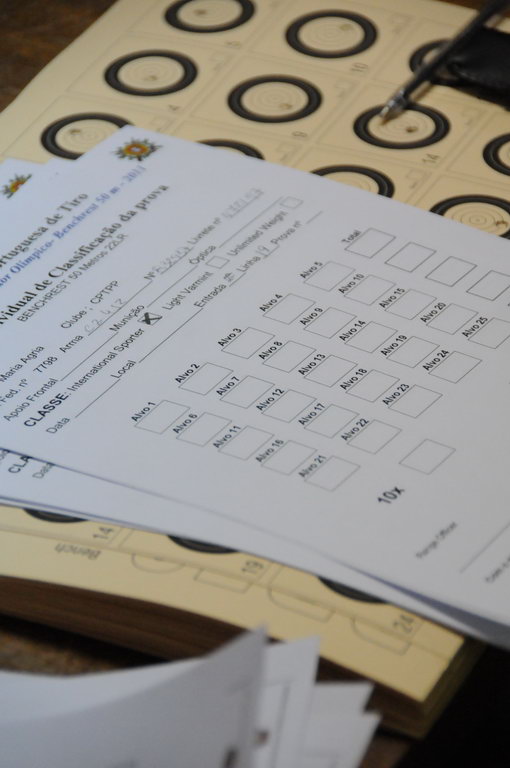 rtuguesa de Tiro
or Olímpico- Benchrest 50 m - 201
ividual de Classificação da prova
BENCHREST 50 Metros 22LR
Maria Agria
Clube: CPTPP
Licnete nº
Fed. nº 7798
Arma CZ 417
Nº
Apoio Frontal
Munição
Óptica
CLASSE: International Sporter
Light Varmint
Unlimited Weight
Data
Local
Entrada
Linha 19
Prova nº
Alvo 1
Alvo 2
Alvo 3
Alvo 4
Alvo 5
Total
Alvo 6
Alvo 7
Alvo 8
Alvo 9
Alvo 10
Alvo 11
Alvo 12
Alvo 13
Alvo 14
Alvo 15
Alvo 16
Alvo 17
Alvo 18
Alvo 19
Alvo 20
Alvo 21
Alvo 22
Alvo 23
Alvo 24
Alvo 25
10x
Range Officer
CLA
Data
4
9
10
14
14
19
24
Bench